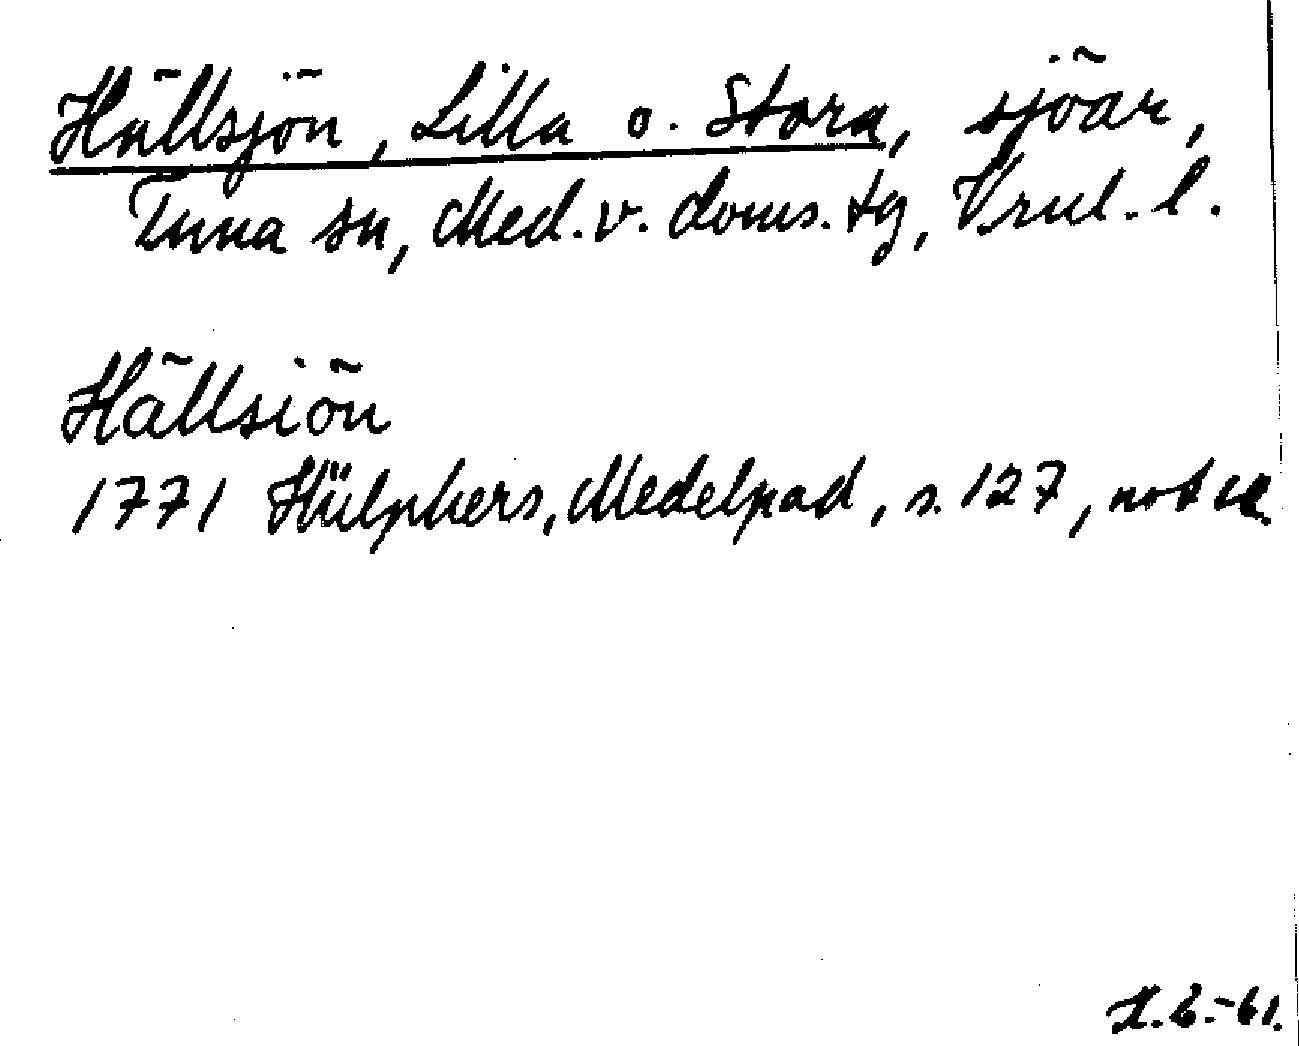 Hällsjön, Lilla o. Stora, sjöar,
Tuna sn, Med. v. doms. tg, Vrnl. l.
Hällsiön
1771 Hülphers, Medelpad, s. 127, not